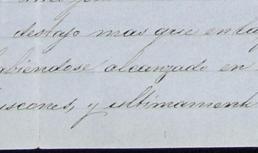 destajo mas que en la
abiendose alcanzado en
uscones, y ultimament